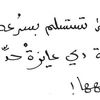 تستسلم بسرعة
ة دي عايزة حد
هها!